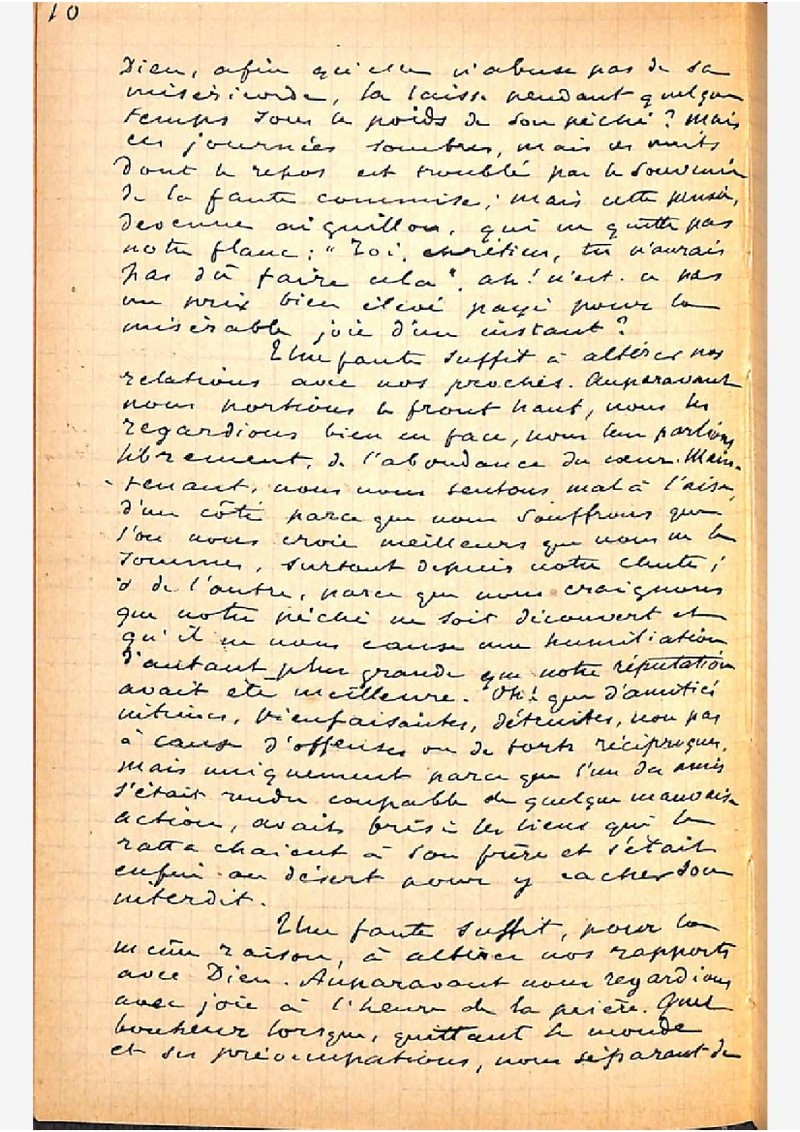 10
Dieu, afin qu'elle n'abuse pas de sa
miséricorde, la laisse pendant quelque
temps sous le poids de son péché ? Mais
ces journées sombres, mais ces nuits
dont le repos est troublé par le souvenir
de la faute commise ; mais cette pensée,
devenue aiguillon, qui ne quitte pas
notre flanc : "Toi, chrétien, tu n'aurais
pas dû faire cela", ah ! n'est-ce pas
un prix bien élevé payé pour la
misérable joie d'un instant ?
Une faute suffit à altérer nos
relations avec nos proches. Auparavant
nous portions le front haut, nous les
regardions bien en face, nous leur parlions
librement, de l'abondance du cœur. Main-
tenant, nous nous sentons mal à l'aise,
d'un côté parce que nous souffrons que
l'on nous croie meilleurs que nous ne le
sommes, surtout depuis notre chute ;
de l'autre, parce que nous craignons
que notre péché ne soit découvert et
qu'il ne nous cause une humiliation
d'autant plus grande que notre réputation
avait été meilleure. Oh ! que d'amitiés
intimes, bienfaisantes, détruites, non pas
à cause d'offenses ou de torts réciproques,
mais uniquement parce que l'un des amis
s'était rendu coupable de quelque mauvaise
action, avait brisé les liens qui le
rattachaient à son frère et s'était
enfui au désert pour y cacher son
interdit.
Une faute suffit, pour la
même raison, à altérer nos rapports
avec Dieu. Auparavant nous regardions
avec joie à l'heure de la prière. Quel
bonheur lorsque, quittant le monde
et ses préoccupations, nous séparant de